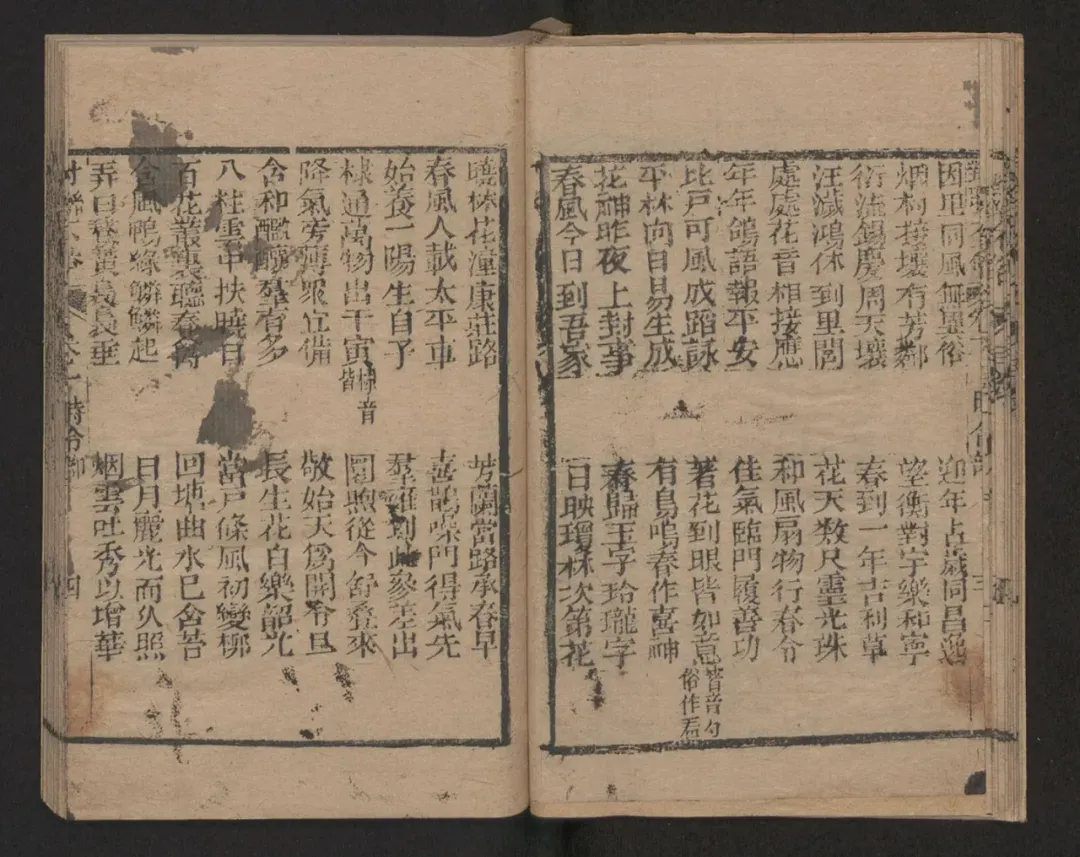 因里同風無墨俗
迎年占歲同昌逸
烟村撲壤有芳鄰
望衡對宇樂和寧
衍流錫慶周天壤
春到一年吉利草
汪濊鴻休到里閭
花天数尺靈光珠
處處花音相接應
和風扇物行春令
年年鴿語報平安
佳氣臨門履善功
比戶可風成蹈詠
著花到眼皆如意
皆音勺
俗作看
平林向日易生成
有鳥鳴春作喜神
花神昨夜上封事
春歸玉字玲瓏字
春風今日到吾家
日映瓊林次第花
曉林花潼康莊路
芳蘭當路承春早
春風人載太平車
喜鵲噪門得氣先
始養一陽生自子
羣雞到此參差出
棣通萬物出干寅
棣音
皆
圓煦從今舒叠來
降氣旁薄罘宜備
敬始天爲開令旦
含和醞釀羣有多
長生花自樂韶光
八柱雲中扶曉日
當戸條風初變柳
百花叢裏聽春禽
回塘曲水已舍苔
含風鴨綠鱗鱗起
日月麗光而久照
弄日鵞黃裊裊垂
烟雲吐秀以增華
時令部
四